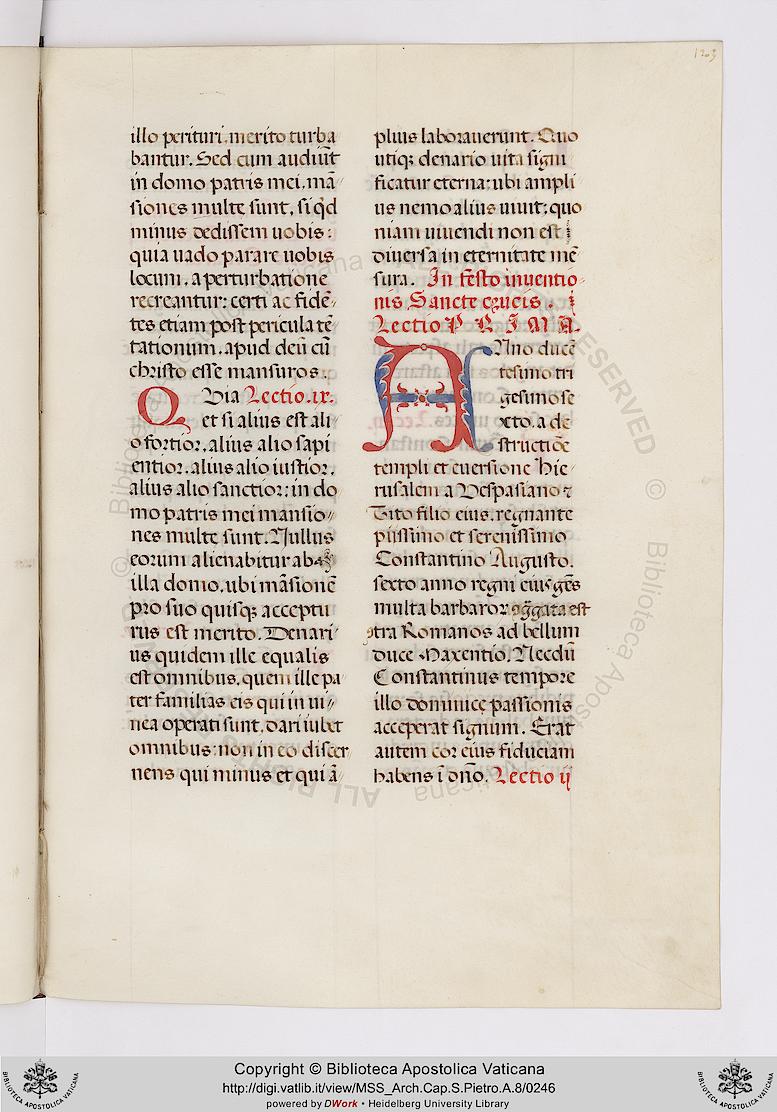 123
illo perituri, merito turba
bantur. Sed cum audiūt
in domo patris mei, mā
siones multe sunt, si qđ
minus dedissem uobis:
quia uado parare uobis
locum, a perturbatione
recreantur: certi ac fidē
tes etiam post pericula tē
tationum, apud deū cū
christo esse mansuros.
QVia Lectio .ix.
et si alius est ali
o fortior, alius alio sapi
entior, alius alio iustior,
alius alio sanctior: in do
mo patris mei mansio
nes multe sunt. Nullus
eorum alienabitur ab
illa domo, ubi māsionē
pro suo quisqȝ acceptu
rus est merito. Denari
us quidem ille equalis
est omnibus, quem ille pa
ter familias eis qui in ui
nea operati sunt, dari iubet
omnibus: non in eo discer
nens qui minus et qui ā
plius laborauerunt. Quo
utiqȝ denario uita signi
ficatur eterna: ubi ampli
us nemo alius uiuit: quo
niam uiuendi non est
diuersa in eternitate mē
sura. In festo inuentio
nis Sancte crucis.
Lectio PRIMA.
ANno ducē
tesimo tri
gesimo se
xto, a de
structiōe
templi et euersione Hie
rusalem a Vespasiano ⁊
Tito filio eius, regnante
piissimo et serenissimo
Constantino Augusto,
sexto anno regni eiuꝰ gēs
multa barbaror ꝯg̃gata est
ꝯtra Romanos ad bellum
duce Maxentio. Necdū
Constantinus tempore
illo dominicę passionis
acceperat signum. Erat
autem cor eius fiduciam
habens ī dn̄o. Lectio ij
Copyright © Biblioteca Apostolica Vaticana
http://digi.vatlib.it/view/MSS_Arch.Cap.S.Pietro.A.8/0246
powered by DWork • Heidelberg University Library